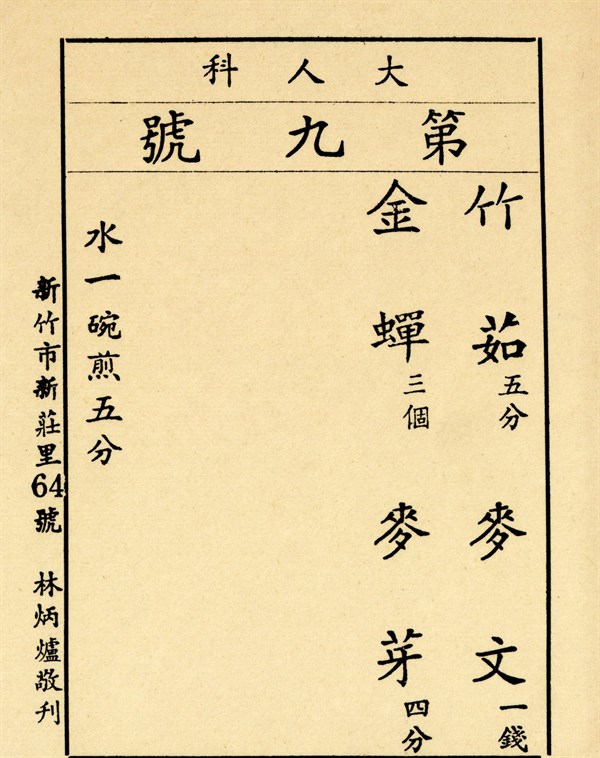 大人科
第九號
竹茹五分 麥文一錢
金蟬三個 麥芽四分
水一碗煎五分
新竹市新莊里64號 林炳爐敬刊